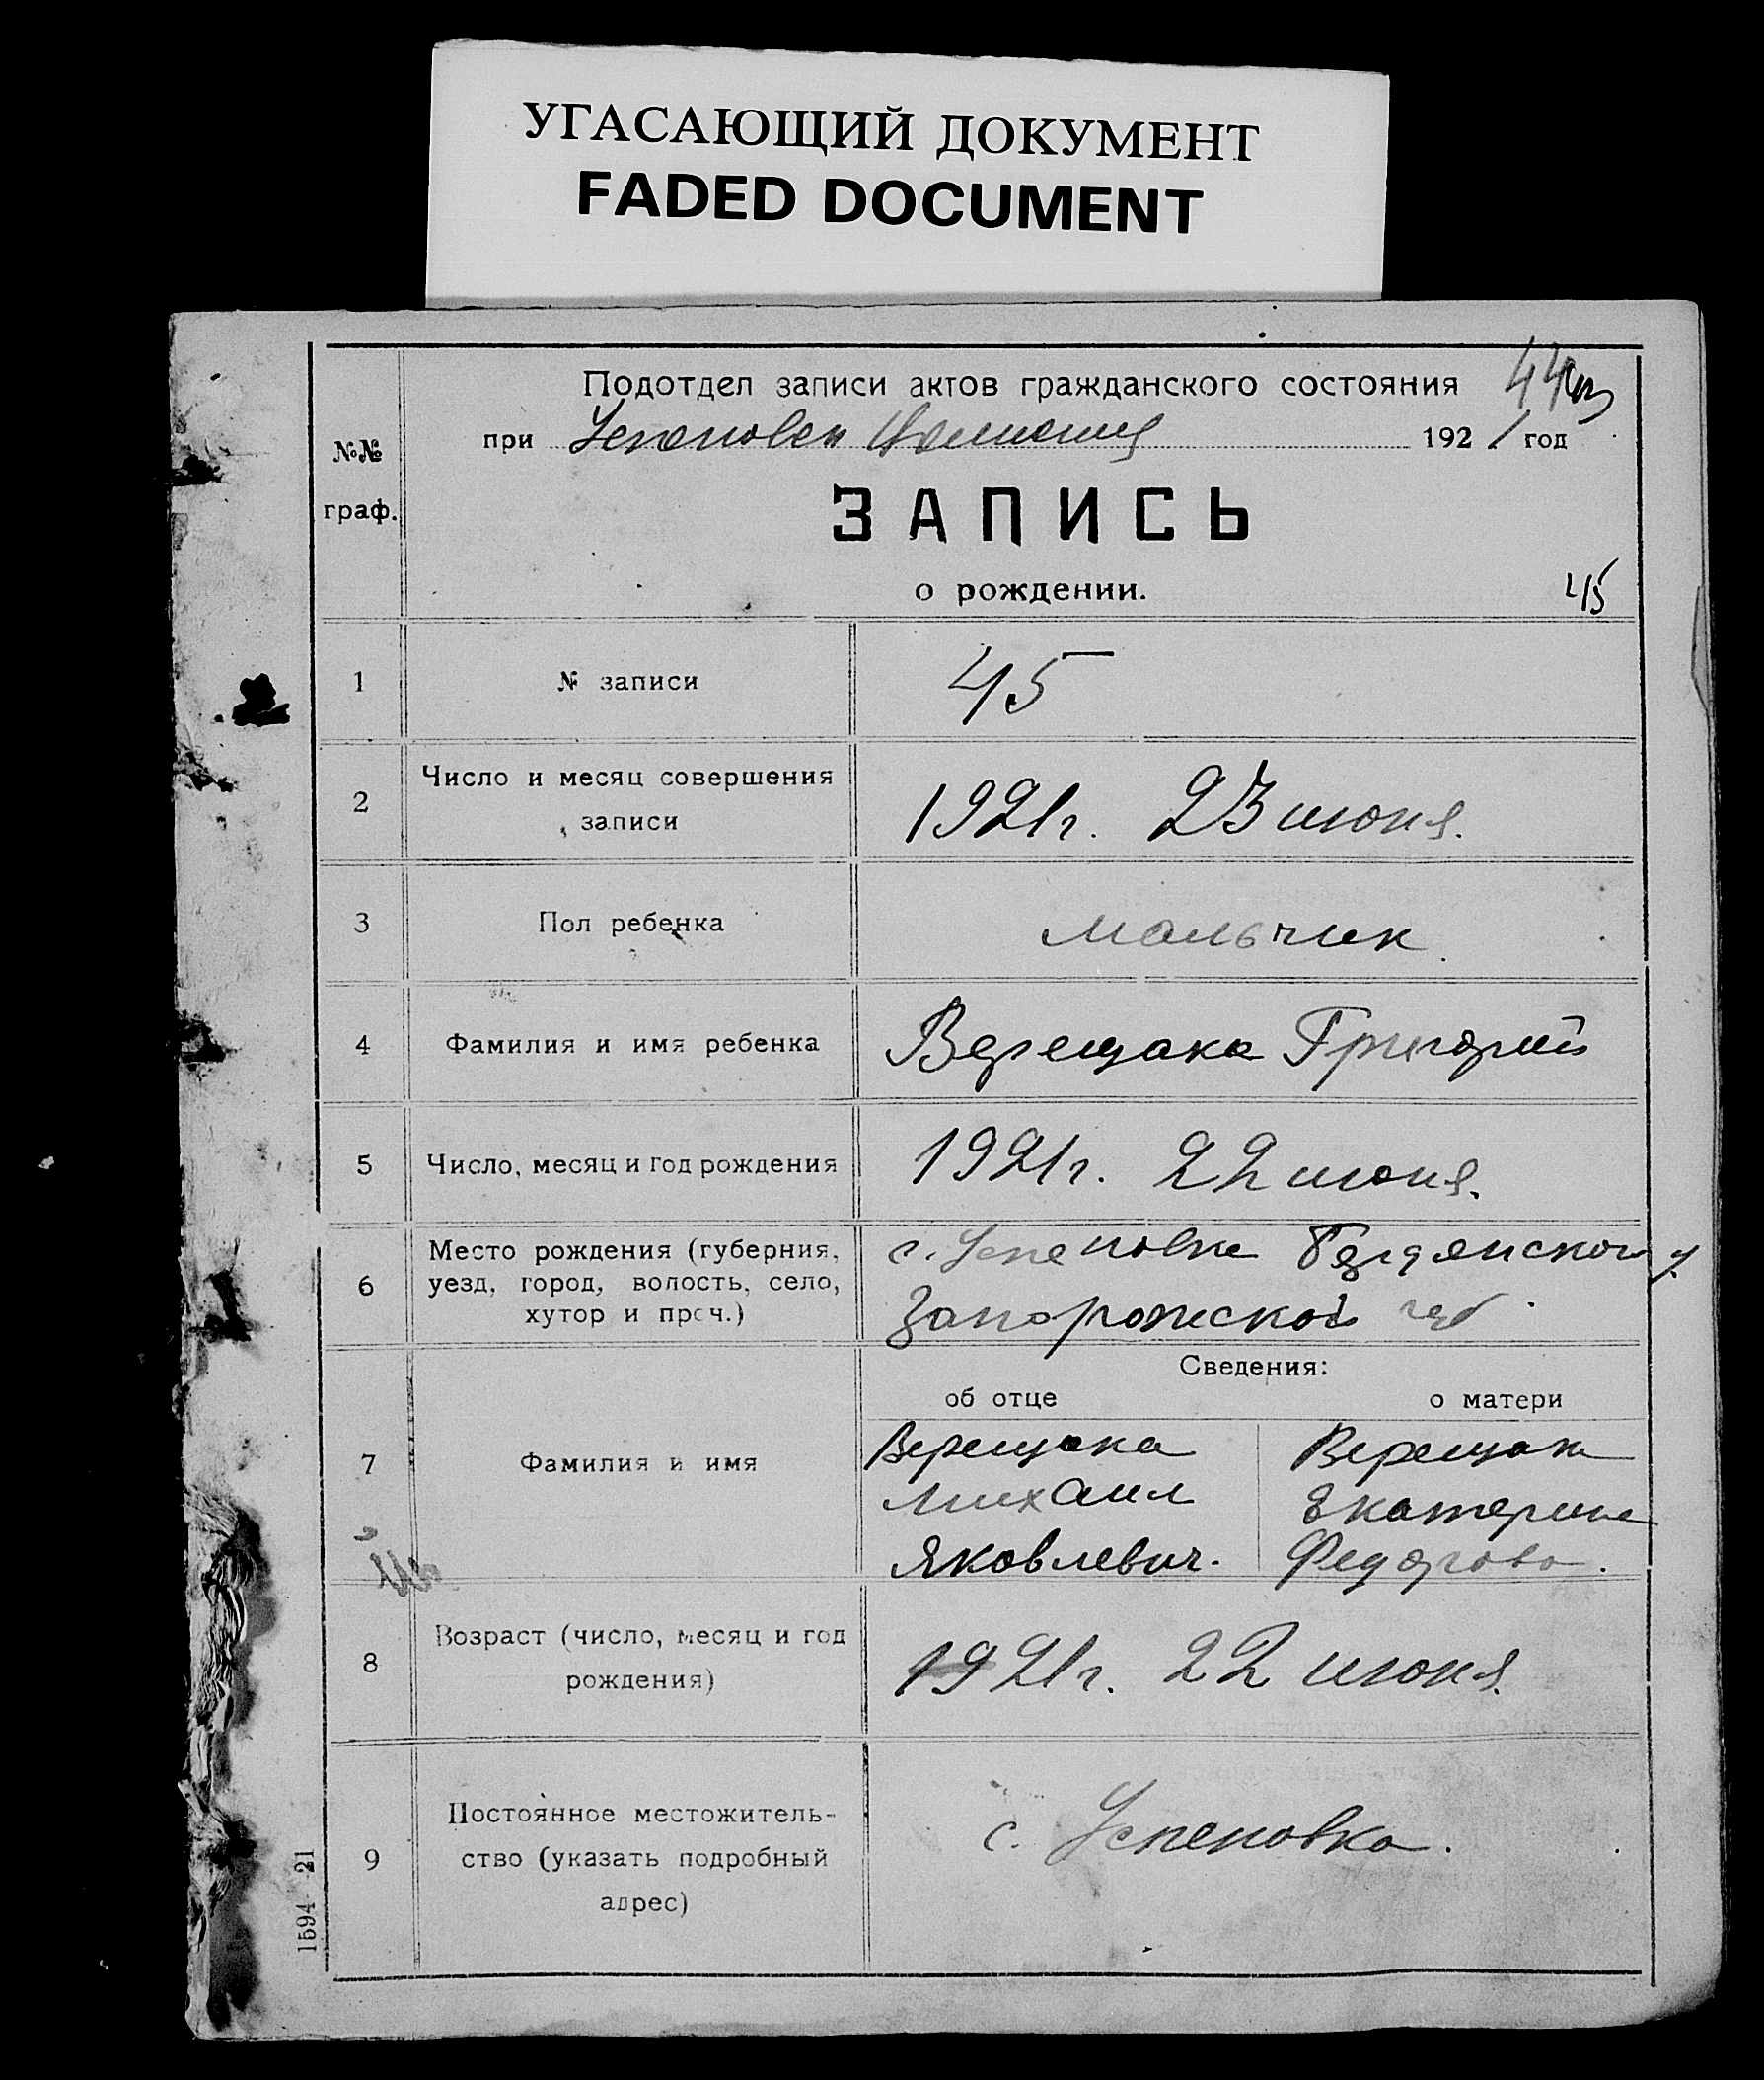 УГАСАЮЩИЙ ДОКУМЕНТ
FADED DOCUMENT
Подотдел записи актов гражданского состояния
при 1921 год
№№
граф.
ЗАПИСЬ
о рождении.
45
1 № записи 45
2 Число и месяц совершения
записи
1921г. 23 июня.
3 Пол ребенка мальчик
4 Фамилия и имя ребенка Верещака Григорий
5 Число, месяц и год рождения 1921г. 22 июня.
6 Место рождения (губерния,
уезд, город, волость, село,
хутор и проч.)
с. Бердянского у.
Запорожской губ.
Сведения:
об отце о матери
7 Фамилия и имя
Верещака
Михаил
Яковлевич.
Верещака
Екатерина
Федорова.
8 Возраст (число, месяц и год
рождения)
1921г. 22 июня.
9 Постоянное местожитель-
ство (указать подробный
адрес)
с. Успеновка.
1594 21